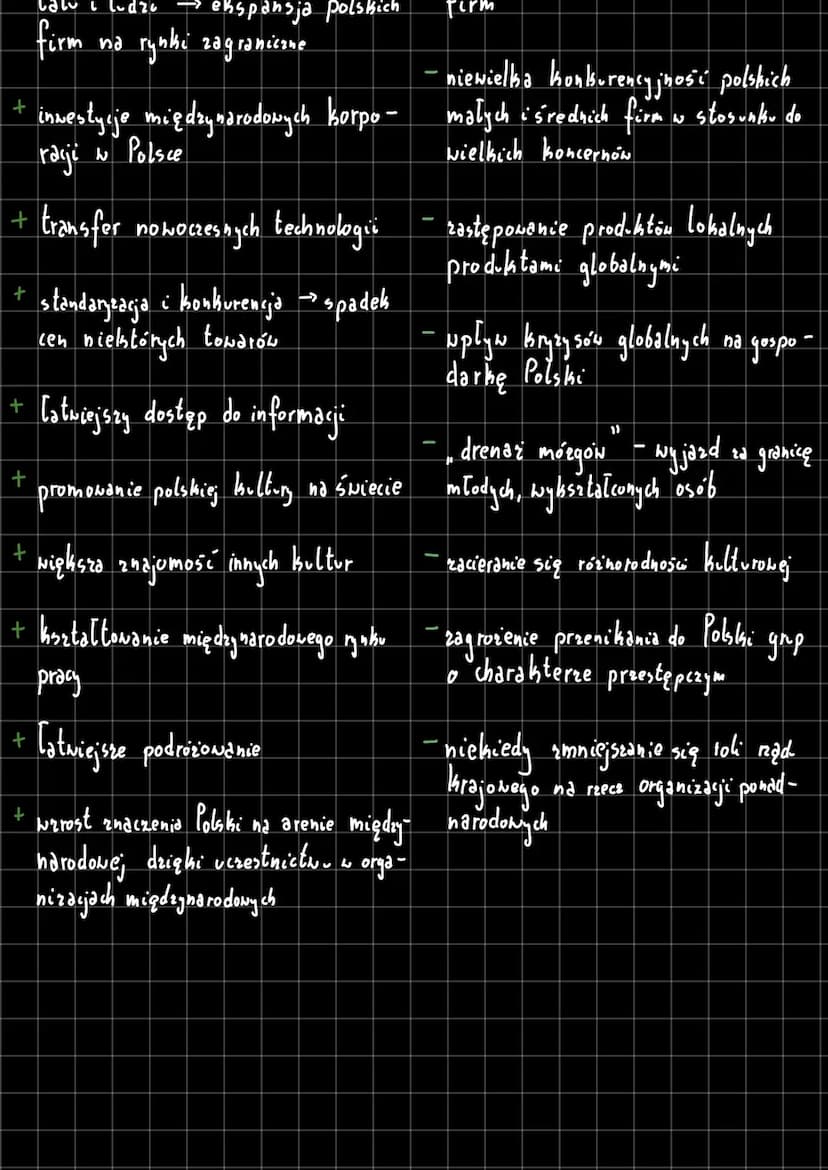 i ludzi → ekspansja polskich
firm na rynki zagraniczne
+ inwestycje międzynarodowych korpo-
racji w Polsce
+ transfer nowoczesnych technologii
+ standaryzacja i konkurencja → spadek
cen niektórych towarów
+ łatwiejszy dostęp do informacji
+ promowanie polskiej kultury na świecie
+ większa znajomość innych kultur
+ kształtowanie międzynarodowego rynku
pracy
+ łatwiejsze podróżowanie
+ wzrost znaczenia Polski na arenie między-
narodowej dzięki uczestnictwu w orga-
nizacjach międzynarodowych
firm
- niewielka konkurencyjność polskich
małych i średnich firm w stosunku do
wielkich koncernów
- zastępowanie produktów lokalnych
produktami globalnymi
- wpływ kryzysów globalnych na gospo-
darkę Polski
- „drenaż mózgów” - wyjazd za granicę
młodych, wykształconych osób
- zacieranie się różnorodności kulturowej
- zagrożenie przenikania do Polski grup
o charakterze przestępczym
- niekiedy zmniejszanie się roli rząd
krajowego na rzecz organizacji ponad-
narodowych